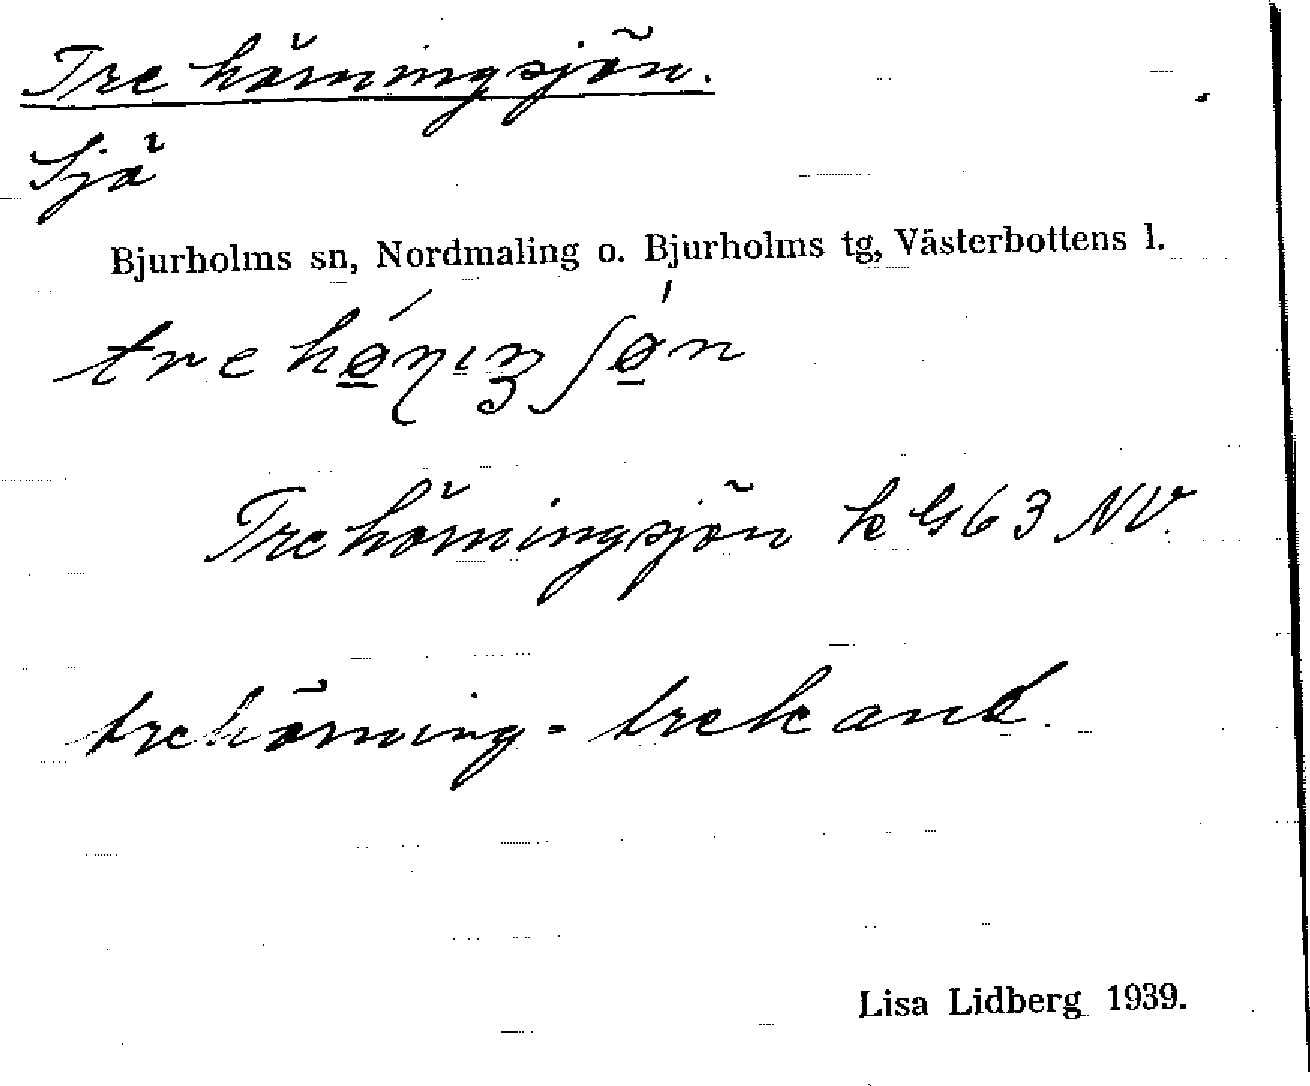 Trehörningsjön.
Sjö
Bjurholms sn, Nordmaling o. Bjurholms tg, Västerbottens l.
Trehörningsjön k G63 NV.
trehörning = trekant.
Lisa Lidberg 1939.